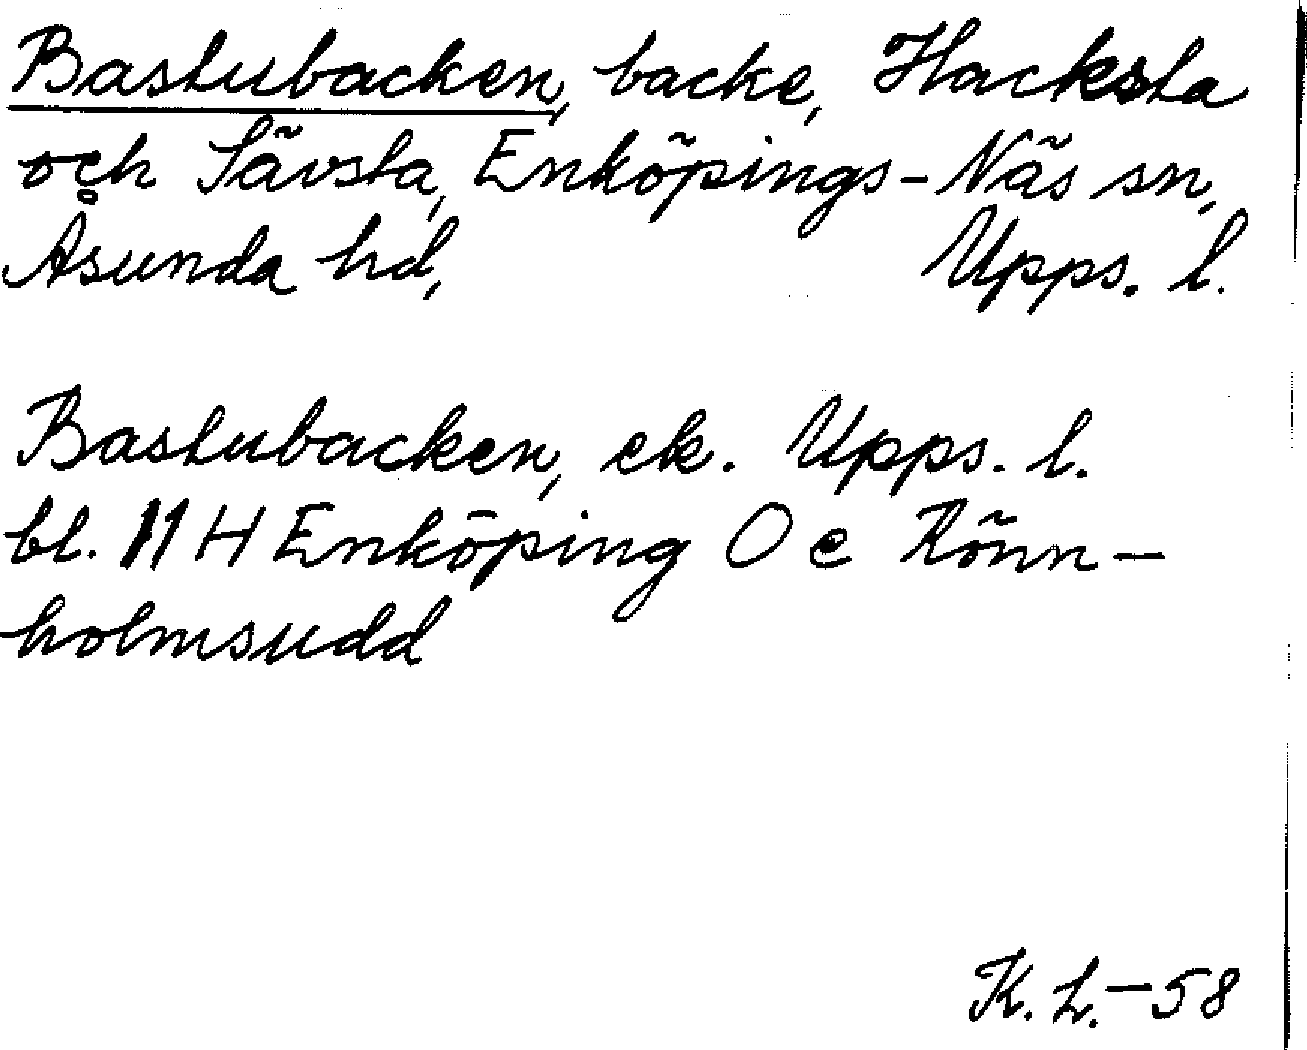 Bastubacken, backe, Hacksta
och Sävsta, Enköpings-Näs sn,
Åsunda hd, Upps. l.
Bastubacken, ek. Upps. l.
bl. 11 H Enköping O e Rönn-
holmsudd
K. L. - 58